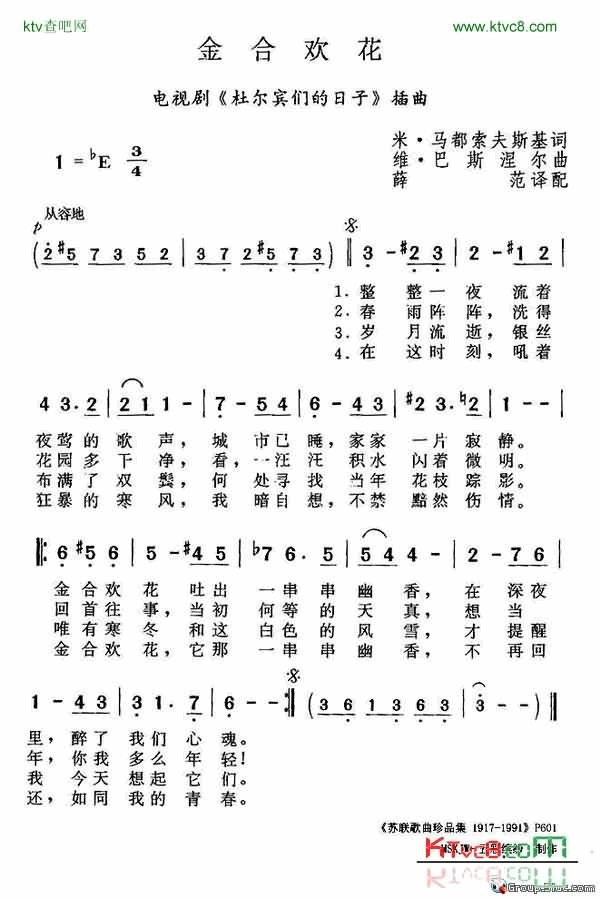 ktv查吧网
www.ktvc8.com
金合欢花
电视剧《杜尔宾们的日子》插曲
米·马都索夫斯基词
1=♭E 3/4
维·巴斯涅尔曲
薛范译配
从容地
p
(2 #5 7 3 5 2 | 3 7 2 #5 7 3) | 3 - #2 3 | 2 - #1 2 |
1.整整一夜流着
2.春雨阵阵，洗得
3.岁月流逝，银丝
4.在这时刻，吼着
4 3. 2 | 2 1 1 - | 7 - 5 4 | 6 - 4 3 | #2 3. ♮2 | 1 - - |
夜莺的歌声，城市已睡，家家一片寂静。
花园多干净，看，一汪汪积水闪着微明。
布满了双鬓，何处寻找当年花枝踪影。
狂暴的寒风，我暗自想，不禁黯然伤情。
6 #5 6 | 5 - #4 5 | ♭7 6. 5 | 5 4 4 - | 2 - 7 6 |
金合欢花吐出一串串幽香，在深夜
回首往事，当初何等的天真，想当
唯有寒冬和这白色的风雪，才提醒
金合欢花，它那一串串幽香，不再回
1 - 4 3 | 3 1. 7 | 6 - - :| (3 6 1 3 6 3 | 3 - -) |
里，醉了我们心魂。
年，你我多么年轻！
我今天想起它们。
还，如同我的青春。
《苏联歌曲珍品集 1917-1991》P601
制作
Ktvc8.com
KTVC8.com
GroupsTuc.com